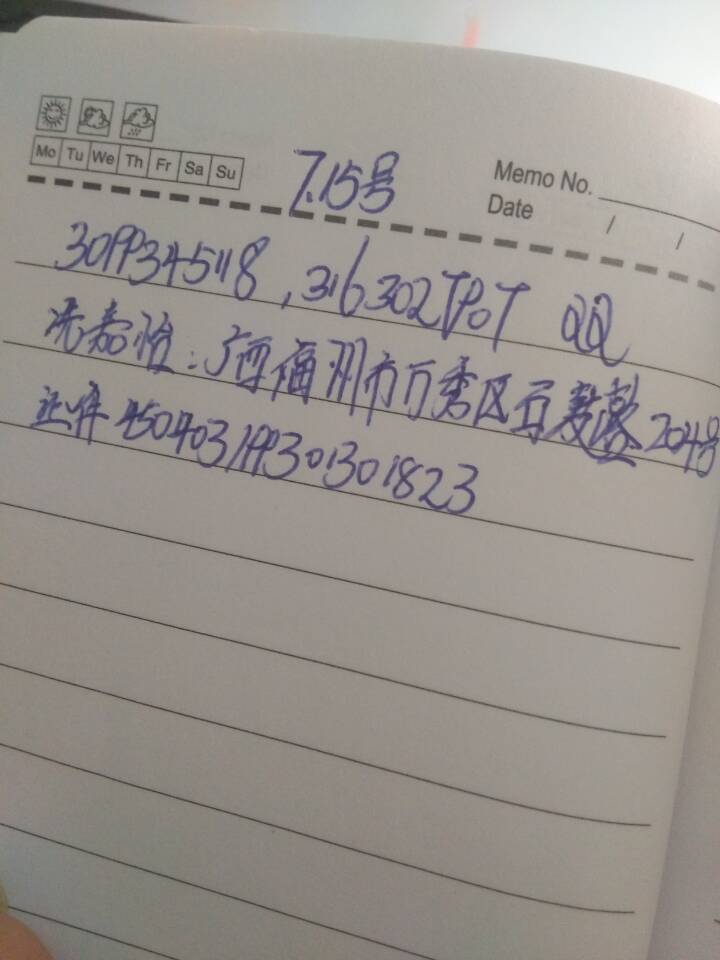 Mo Tu We Th Fr Sa Su
7.15号
Memo No.
Date / /
3099345118, 316302TPOT QQ
冼嘉怡:广西福州市万秀区 204号
证件 450403199301301823